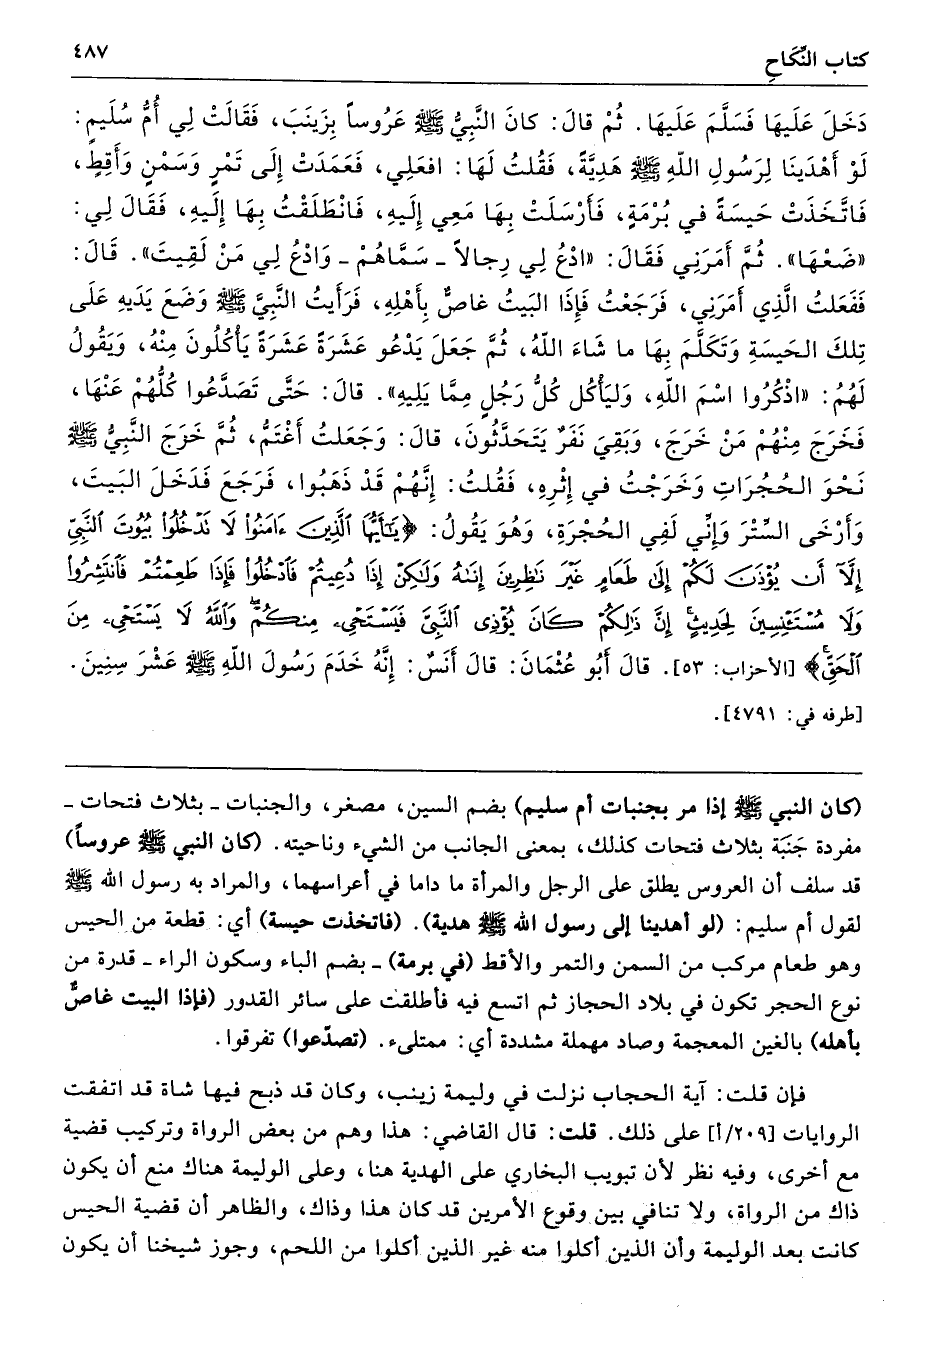 كتاب النِّكَاحِ
٤٨٧
دَخَلَ عَلَيهَا فَسَلَّمَ عَلَيهَا. ثُمَّ قالَ: كانَ النَّبِيُّ ﷺ عَرُوساً بِزَينَبَ، فَقَالَتْ لِي أُمُّ سُلَيمٍ:
لَوْ أَهْدَينَا لِرَسُولِ اللّهِ ﷺ هَدِيَّةً، فَقُلتُ لَهَا: افعَلِي، فَعَمَدَتْ إِلَى تَمْرٍ وَسَمْنٍ وَأَقِطٍ،
فَاتَّخَذَتْ حَيسَةً في بُرْمَةٍ، فَأَرْسَلَتْ بِهَا مَعِي إِلَيهِ، فَانْطَلَقْتُ بِهَا إِلَيهِ، فَقَالَ لِي:
«ضَعْهَا». ثُمَّ أَمَرَنِي فَقَالَ: «ادْعُ لِي رِجالاً ـ سَمَّاهُمْ ـ وَادْعُ لِي مَنْ لَقِيتَ». قَالَ:
فَفَعَلتُ الَّذِي أَمَرَنِي، فَرَجَعْتُ فَإِذَا البَيتُ غاصٌّ بِأَهْلِهِ، فَرَأَيتُ النَّبِيَّ ﷺ وَضَعَ يَدَيهِ عَلَى
تِلكَ الحَيسَةِ وَتَكَلَّمَ بِهَا ما شَاءَ اللّهُ، ثُمَّ جَعَلَ يَدْعُو عَشَرَةً عَشَرَةً يَأْكُلُونَ مِنْهُ، وَيَقُولُ
لَهُمُ: «اذْكُرُوا اسْمَ اللّهِ، وَليَأْكُل كُلُّ رَجُلٍ مِمَّا يَلِيهِ». قالَ: حَتَّى تَصَدَّعُوا كُلُّهُمْ عَنْهَا،
فَخَرَجَ مِنْهُمْ مَنْ خَرَجَ، وَبَقِيَ نَفَرٌ يَتَحَدَّثُونَ، قالَ: وَجَعَلتُ أَغْتَمُّ، ثُمَّ خَرَجَ النَّبِيُّ ﷺ
نَحْوَ الحُجُرَاتِ وَخَرَجْتُ في إِثْرِهِ، فَقُلتُ: إِنَّهُمْ قَدْ ذَهَبُوا، فَرَجَعَ فَدَخَلَ البَيتَ،
وَأَرْخَى السِّتْرَ وَإِنِّي لَفِي الحُجْرَةِ، وَهُوَ يَقُولُ: ﴿يَٰٓأَيُّهَا ٱلَّذِينَ ءَامَنُوا۟ لَا تَدْخُلُوا۟ بُيُوتَ ٱلنَّبِىِّ
إِلَّآ أَن يُؤْذَنَ لَكُمْ إِلَىٰ طَعَامٍ غَيْرَ نَٰظِرِينَ إِنَىٰهُ وَلَٰكِنْ إِذَا دُعِيتُمْ فَٱدْخُلُوا۟ فَإِذَا طَعِمْتُمْ فَٱنتَشِرُوا۟
وَلَا مُسْتَـْٔنِسِينَ لِحَدِيثٍ إِنَّ ذَٰلِكُمْ كَانَ يُؤْذِى ٱلنَّبِىَّ فَيَسْتَحْىِۦ مِنكُمْ وَٱللَّهُ لَا يَسْتَحْىِۦ مِنَ
ٱلْحَقِّ﴾ [الأحزاب: ٥٣]. قالَ أَبُو عُثْمَانَ: قالَ أَنَسٌ: إِنَّهُ خَدَمَ رَسُولَ اللّهِ ﷺ عَشْرَ سِنِينَ.
[طرفه في: ٤٧٩١].
(كان النبي ﷺ إذا مر بجنبات أم سليم) بضم السين، مصغر، والجنبات ـ بثلاث فتحات ـ
مفردة جَنَبَة بثلاث فتحات كذلك، بمعنى الجانب من الشيء وناحيته. (كان النبي ﷺ عروساً)
قد سلف أن العروس يطلق على الرجل والمرأة ما داما في أعراسهما، والمراد به رسول الله ﷺ
لقول أم سليم: (لو أهدينا إلى رسول الله ﷺ هدية). (فاتخذت حيسة) أي: قطعة من الحيس
وهو طعام مركب من السمن والتمر والأقط (في برمة) ـ بضم الباء وسكون الراء ـ قدرة من
نوع الحجر تكون في بلاد الحجاز ثم اتسع فيه فأطلقت على سائر القدور (فإذا البيت غاصٌّ
بأهله) بالغين المعجمة وصاد مهملة مشددة أي: ممتلىء. (تصدّعوا) تفرقوا.
فإن قلت: آية الحجاب نزلت في وليمة زينب، وكان قد ذبح فيها شاة قد اتفقت
الروايات [٢٠٩/أ] على ذلك. قلت: قال القاضي: هذا وهم من بعض الرواة وتركيب قضية
مع أخرى، وفيه نظر لأن تبويب البخاري على الهدية هنا، وعلى الوليمة هناك منع أن يكون
ذاك من الرواة، ولا تنافي بين وقوع الأمرين قد كان هذا وذاك، والظاهر أن قضية الحيس
كانت بعد الوليمة وأن الذين أكلوا منه غير الذين أكلوا من اللحم، وجوز شيخنا أن يكون